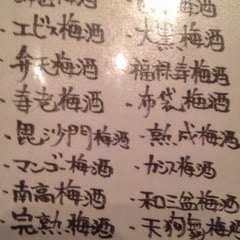 ・エビス梅酒
・大黒梅酒
・弁天梅酒
福禄寿梅酒
・寿老梅酒
・布袋梅酒
・毘沙門梅酒
・熟成梅酒
・マンゴー梅酒
・カシス梅酒
・南高梅酒
・和三盆梅酒
・完熟梅酒
・天狗舞梅酒